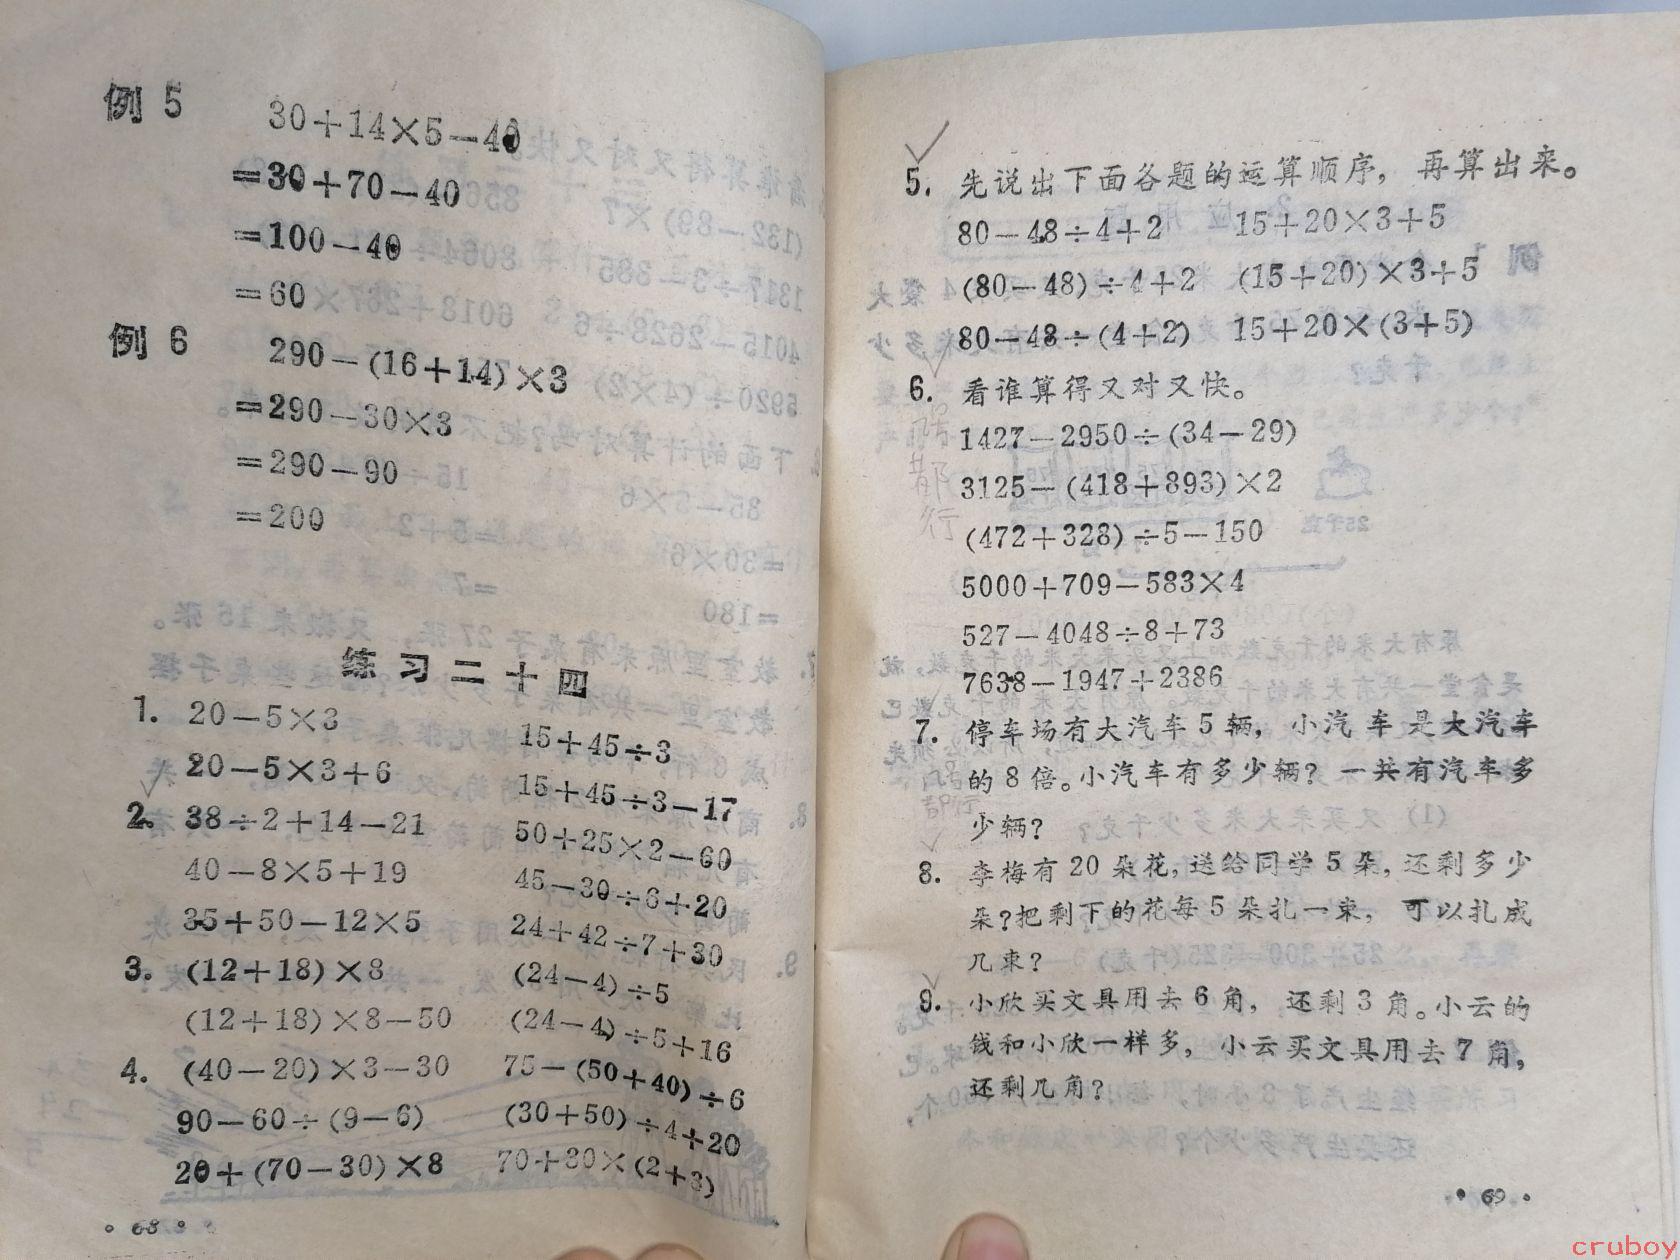 例 5
30+14×5-40
=30+70-40
=100-40
=60
例 6
290-(16+14)×3
=290-30×3
=290-90
=200
练 习 二 十 四
1. 20-5×3 15+45÷3
20-5×3+6 15+45÷3-17
2. 38÷2+14-21 50+25×2-60
40-8×5+19 45-30÷6+20
35+50-12×5 24+42÷7+30
3. (12+18)×8 (24-4)÷5
(12+18)×8-50 (24-4)÷5+16
4. (40-20)×3-30 75-(50+40)÷6
90-60÷(9-6) (30+50)÷4+20
20+(70-30)×8 70+30×(2+3)
• 68 •
5. 先说出下面各题的运算顺序，再算出来。
80-48÷4+2 15+20×3+5
(80-48)÷4+2 (15+20)×3+5
80-48÷(4+2) 15+20×(3+5)
6. 看谁算得又对又快。
1427-2950÷(34-29)
3125-(418+893)×2
(472+328)÷5-150
5000+709-583×4
527-4048÷8+73
7638-1947+2386
7. 停车场有大汽车 5 辆，小汽车是大汽车
的 8 倍。小汽车有多少辆？一共有汽车多
少辆？
8. 李梅有 20 朵花，送给同学 5 朵，还剩多少
朵？把剩下的花每 5 朵扎一束，可以扎成
几束？
9. 小欣买文具用去 6 角，还剩 3 角。小云的
钱和小欣一样多，小云买文具用去 7 角，
还剩几角？
• 69 •
cruboy